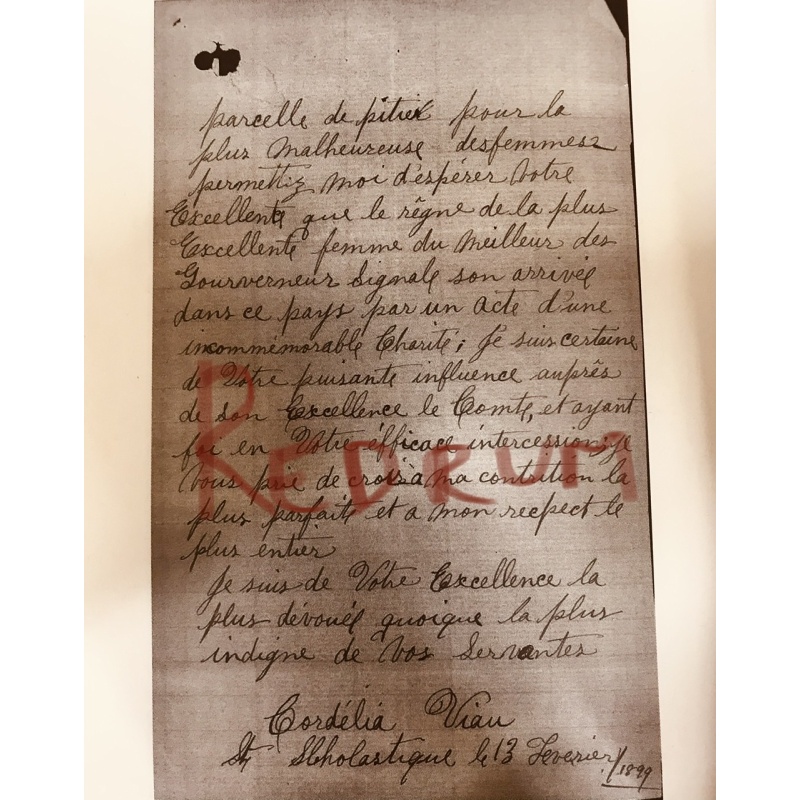 parcelle de pitiex pour la
plus malheureuse desfemmes
permettez moi d'espérer Votre
Excellente que le règne de la plus
Excellente femme du meilleur des
Gourverneur Signale son arrivée
dans ce pays par un acte d'une
incommémorable Charité; Je suis certaine
de Votre puisante influence auprês
de son Excellence le Comte, et ayant
foi en Votre éfficace intercession; je
Vous prie de crois à ma contrition la
plus parfaite et a mon recpect le
plus entier
Je suis de Votre Excellence la
plus dévouée quoique la plus
indigne de Vos Servantes
Cordélia Viau
St Scholastique le 13 Feverier/1899
REDRUM